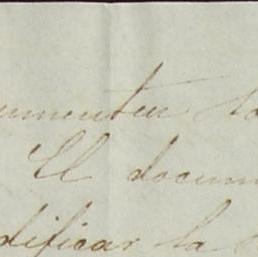 umenten la
El docum
dificar la